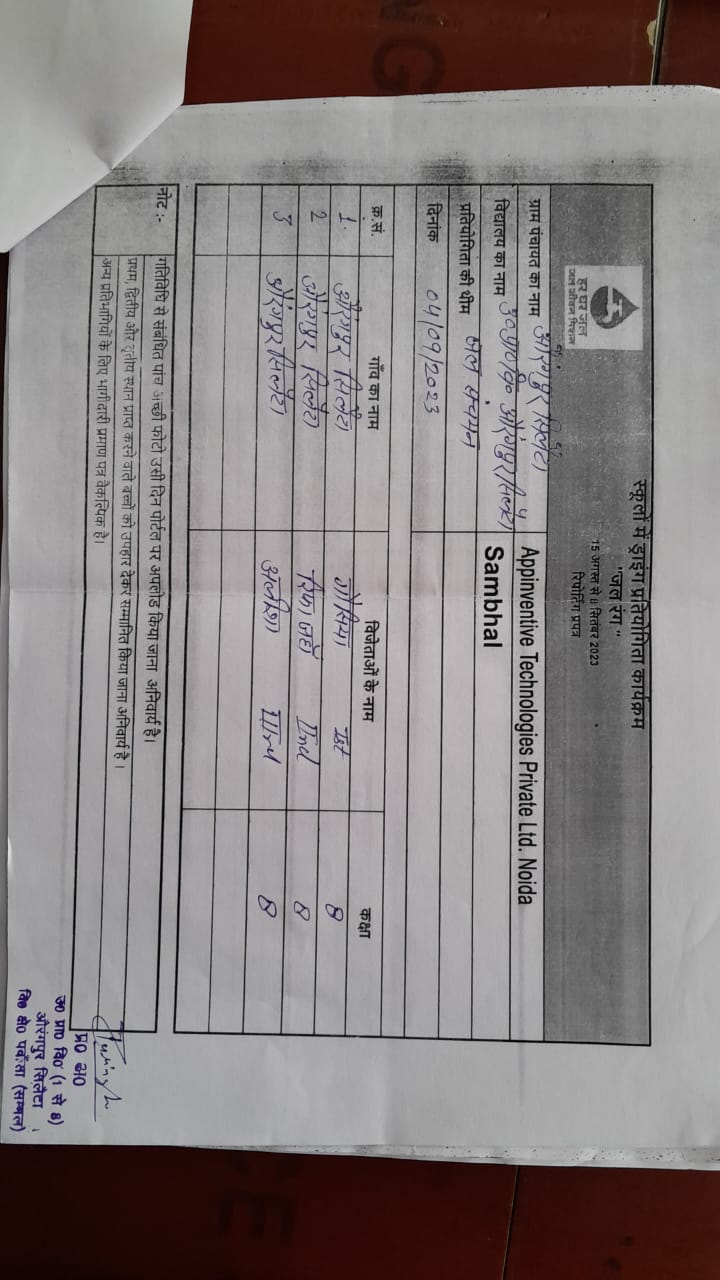 स्कूलों में ड्राइंग प्रतियोगिता कार्यक्रम
"जल रंग"
15 अगस्त से 8 सितंबर 2023
रिपोर्टिंग प्रपत्र
हर घर जल
जल जीवन मिशन
ग्राम पंचायत का नाम औरंगपुर सिलैटा Appinventive Technologies Private Ltd. Noida
विद्यालय का नाम उ०प्रा०वि० औरंगपुर सिलैटा Sambhal
प्रतियोगिता की थीम जल संचयन
दिनांक 04/09/2023
क्र.सं. गाँव का नाम विजेताओं के नाम कक्षा
1. औरंगपुर सिलैटा गौसिया Ist 8
2 औरंगपुर सिलैटा रिफा जहाँ IInd 8
3 औरंगपुर सिलैटा अलीशा IIIrd 8
नोट :- गतिविधि से संबंधित पांच अच्छी फोटो उसी दिन पोर्टल पर अपलोड किया जाना अनिवार्य है।
प्रथम, द्वितीय और तृतीय स्थान प्राप्त करने वाले बच्चों को उपहार देकर सम्मानित किया जाना अनिवार्य है।
अन्य प्रतिभागियों के लिए भागीदारी प्रमाण पत्र वैकल्पिक है।
प्र० अ०
उ० प्रा० वि० (1 से 8)
औरंगपुर सिलैटा
वि० क्षे० पवाँसा (सम्भल)